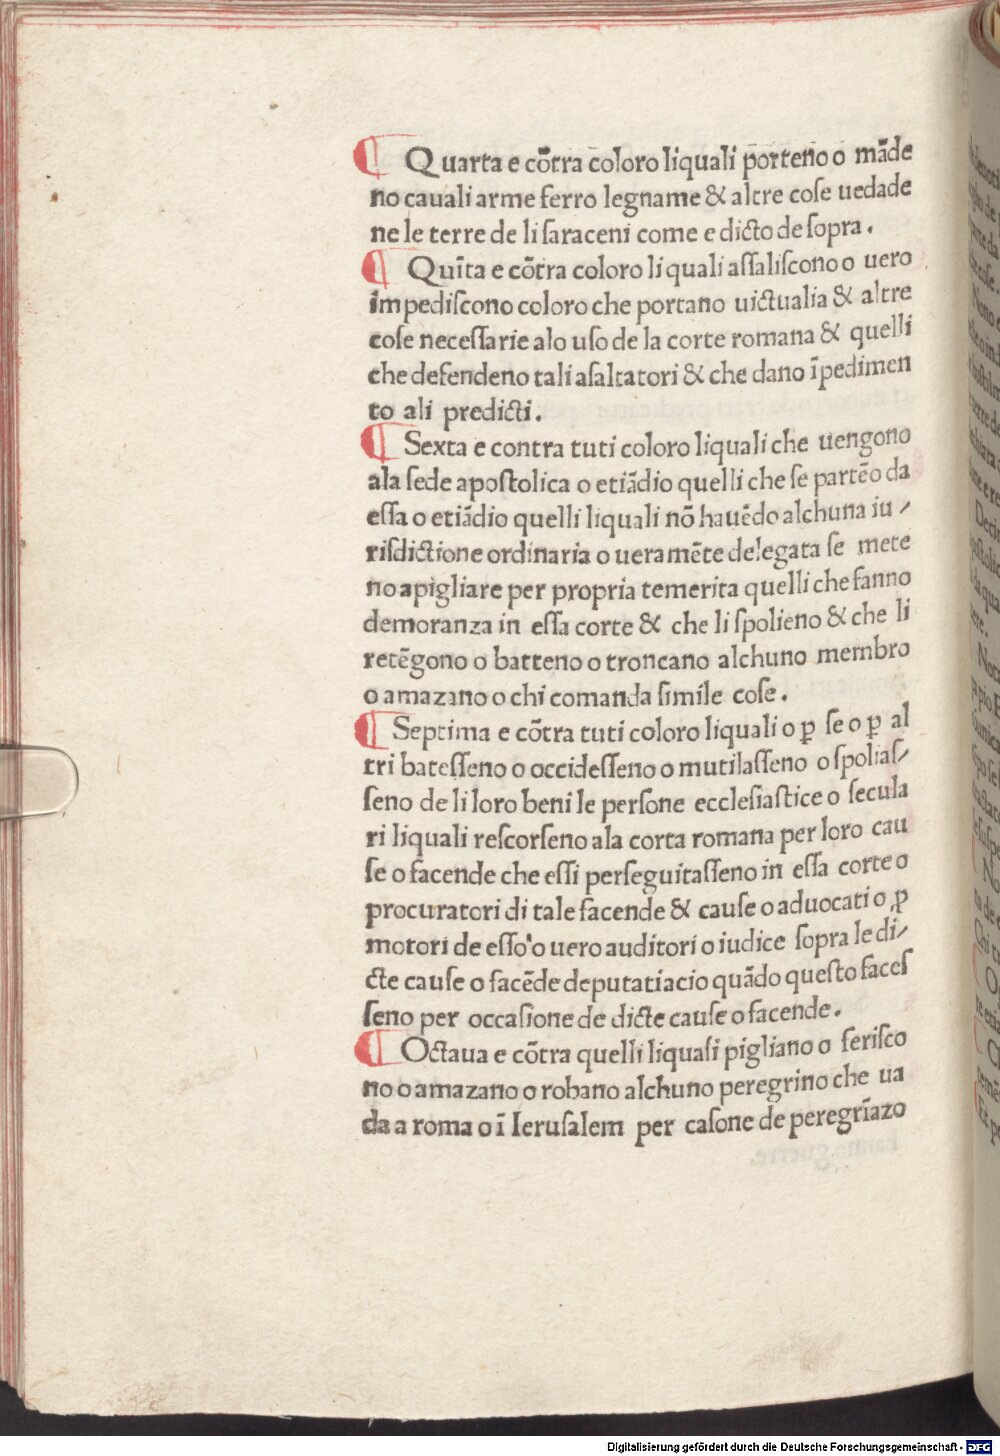 ¶ Quarta e cõtra coloro liquali porteno o mãde
no cauali arme ferro legname & altre coſe uedade
ne le terre de li ſaraceni come e dicto de ſopra.
¶ Quĩta e cõtra coloro li quali aſſaliſcono o uero
impediſcono coloro che portano uictualia & altre
coſe neceſſarie alo uſo de la corte romana & quelli
che defendeno tali aſaltatori & che dano ĩpedimen
to ali predicti.
¶ Sexta e contra tuti coloro liquali che uengono
ala ſede apoſtolica o etiãdio quelli che ſe partẽo da
eſſa o etiãdio quelli liquali nõ hauẽdo alchuna iu⸗
riſdictione ordinaria o ueramẽte delegata ſe mete
no apigliare per propria temerita quelli che fanno
demoranza in eſſa corte & che li ſpolieno & che li
retẽgono o batteno o troncano alchuno membro
o amazano o chi comanda ſimile coſe.
¶ Septima e cõtra tuti coloro liquali o ꝑ ſe o ꝑ al
tri bateſſeno o occideſſeno o mutilaſſeno o ſpoliaſ⸗
ſeno de li loro beni le perſone eccleſiaſtice o ſecula
ri liquali reſcorſeno ala corta romana per loro cau
ſe o facende che eſſi perſeguitaſſeno in eſſa corte o
procuratori di tale facende & cauſe o aduocati o ꝓ
motori de eſſo o uero auditori o iudice ſopra le di⸗
cte cauſe o facẽde deputati acio quãdo queſto faceſ
ſeno per occaſione de dicte cauſe o facende.
¶ Octaua e cõtra quelli liquaſi pigliano o feriſco
no o amazano o robano alchuno peregrino che ua
da a roma o ĩ Ieruſalem per caſone de peregrĩazo
Digitalisierung gefördert durch die Deutsche Forschungsgemeinschaft - DFG